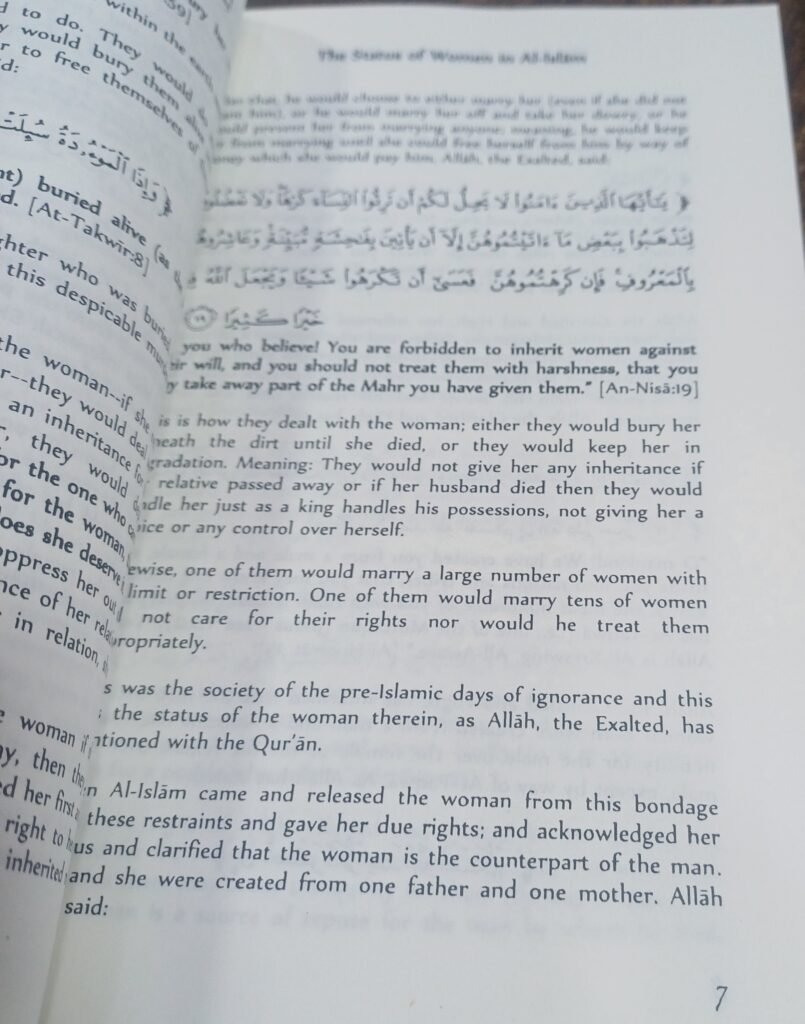 within the earth
d to do. They would do
would bury them alive
to free themselves of
id:
﴿ وَإِذَا ٱلْمَوْءُۥدَةُ سُئِلَتْ
nt) buried alive (as
d. [At-Takwīr:8]
ghter who was buried
this despicable
the woman--if she
r--they would deal
an inheritance for
they would
or the one who
for the woman,
oes she deserve
oppress her out
nce of her rela
in relation,
woman if
ny, then the
ed her first
right to
inherited
The Status of Woman in Al-Islām
he would choose to either marry her (even if she did not
him), or he would marry her off and take her dowry, or he
would prevent her from marrying anyone, meaning, he would keep
from marrying until she could free herself from him by way of
money which she would pay him. Allāh, the Exalted, said:
﴿ يَـٰٓأَيُّهَا ٱلَّذِينَ ءَامَنُوا۟ لَا يَحِلُّ لَكُمْ أَن تَرِثُوا۟ ٱلنِّسَآءَ كَرْهًا ۖ وَلَا تَعْضُلُو
لِتَذْهَبُوا۟ بِبَعْضِ مَآ ءَاتَيْتُمُوهُنَّ إِلَّآ أَن يَأْتِينَ بِفَـٰحِشَةٍ مُّبَيِّنَةٍ ۚ وَعَاشِرُوهُ
بِٱلْمَعْرُوفِ ۚ فَإِن كَرِهْتُمُوهُنَّ فَعَسَىٰٓ أَن تَكْرَهُوا۟ شَيْـًٔا وَيَجْعَلَ ٱللَّهُ فِي
خَيْرًا كَثِيرًا ﴿١٩﴾
you who believe! You are forbidden to inherit women against
ir will, and you should not treat them with harshness, that you
y take away part of the Mahr you have given them." [An-Nisā:19]
is is how they dealt with the woman; either they would bury her
neath the dirt until she died, or they would keep her in
gradation. Meaning: They would not give her any inheritance if
relative passed away or if her husband died then they would
ndle her just as a king handles his possessions, not giving her a
oice or any control over herself.
ewise, one of them would marry a large number of women with
limit or restriction. One of them would marry tens of women
not care for their rights nor would he treat them
ropriately.
s was the society of the pre-Islamic days of ignorance and this
the status of the woman therein, as Allāh, the Exalted, has
ntioned with the Qur'ān.
n Al-Islām came and released the woman from this bondage
these restraints and gave her due rights; and acknowledged her
us and clarified that the woman is the counterpart of the man.
and she were created from one father and one mother. Allāh
said:
7